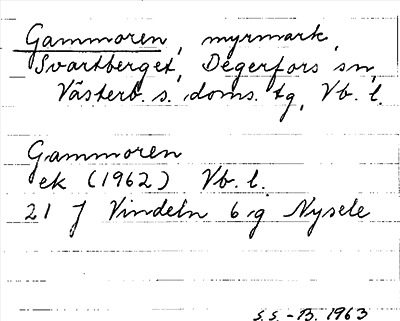 Gammoren, myrmark,
Svartberget, Degerfors sn,
Västerb. s. doms. tg, Vb. l.
Gammoren
ek (1962) Vb. l.
21 J Vindeln 6 g Nysele
S.S.-B. 1963